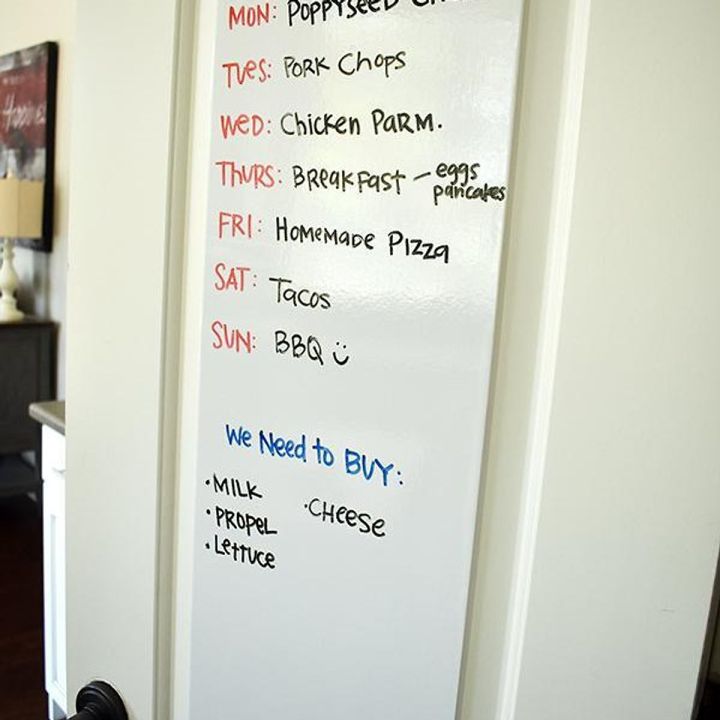 MON: POPPYSEED
TUES: PORK CHOPS
WED: CHICKEN PARM.
THURS: BREAKFAST — eggs
pancakes
FRI: HOMEMADE PIZZA
SAT: TACOS
SUN: BBQ :)
We Need to BUY:
• MILK
• CHEESE
• PROPEL
• Lettuce